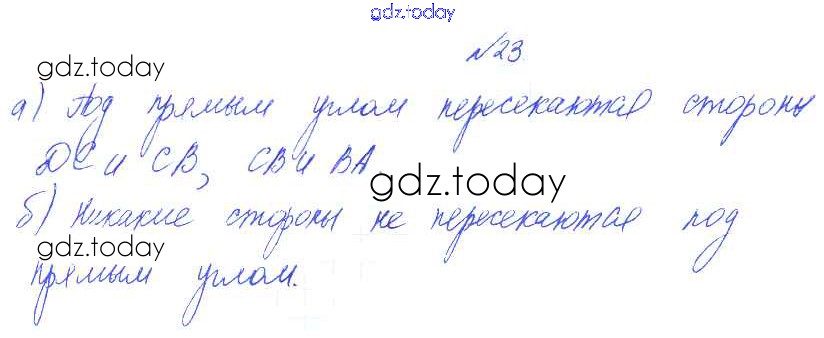 gdz.today
№23.
gdz.today
а) Под прямым углом пересекаются стороны
DC и CB, CB и BA
gdz.today
б) Никакие стороны не пересекаются под
gdz.today
прямым углом.